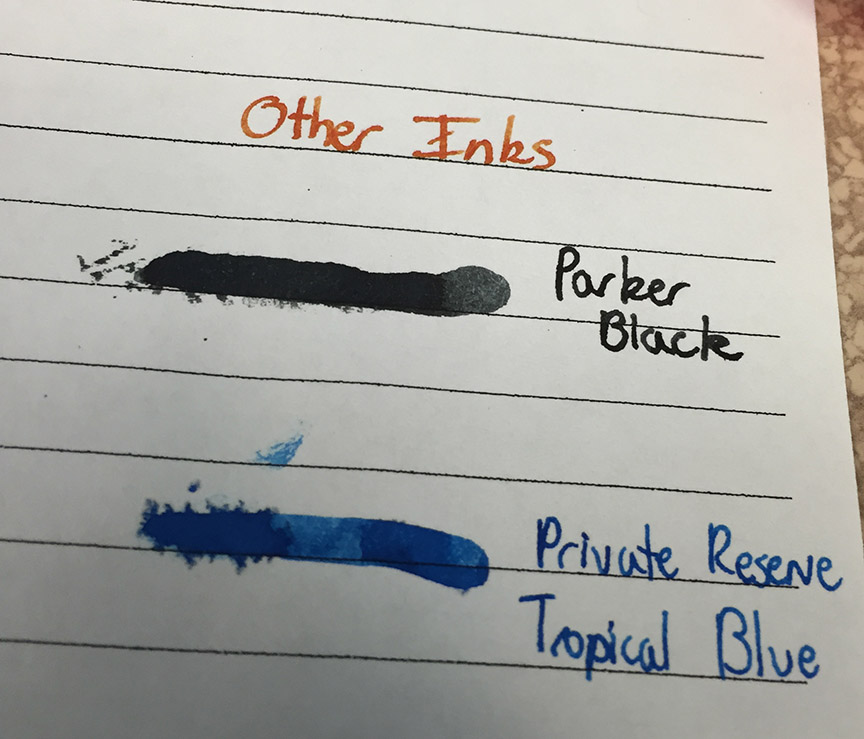 Other Inks
Parker
Black
Private Reserve
Tropical Blue